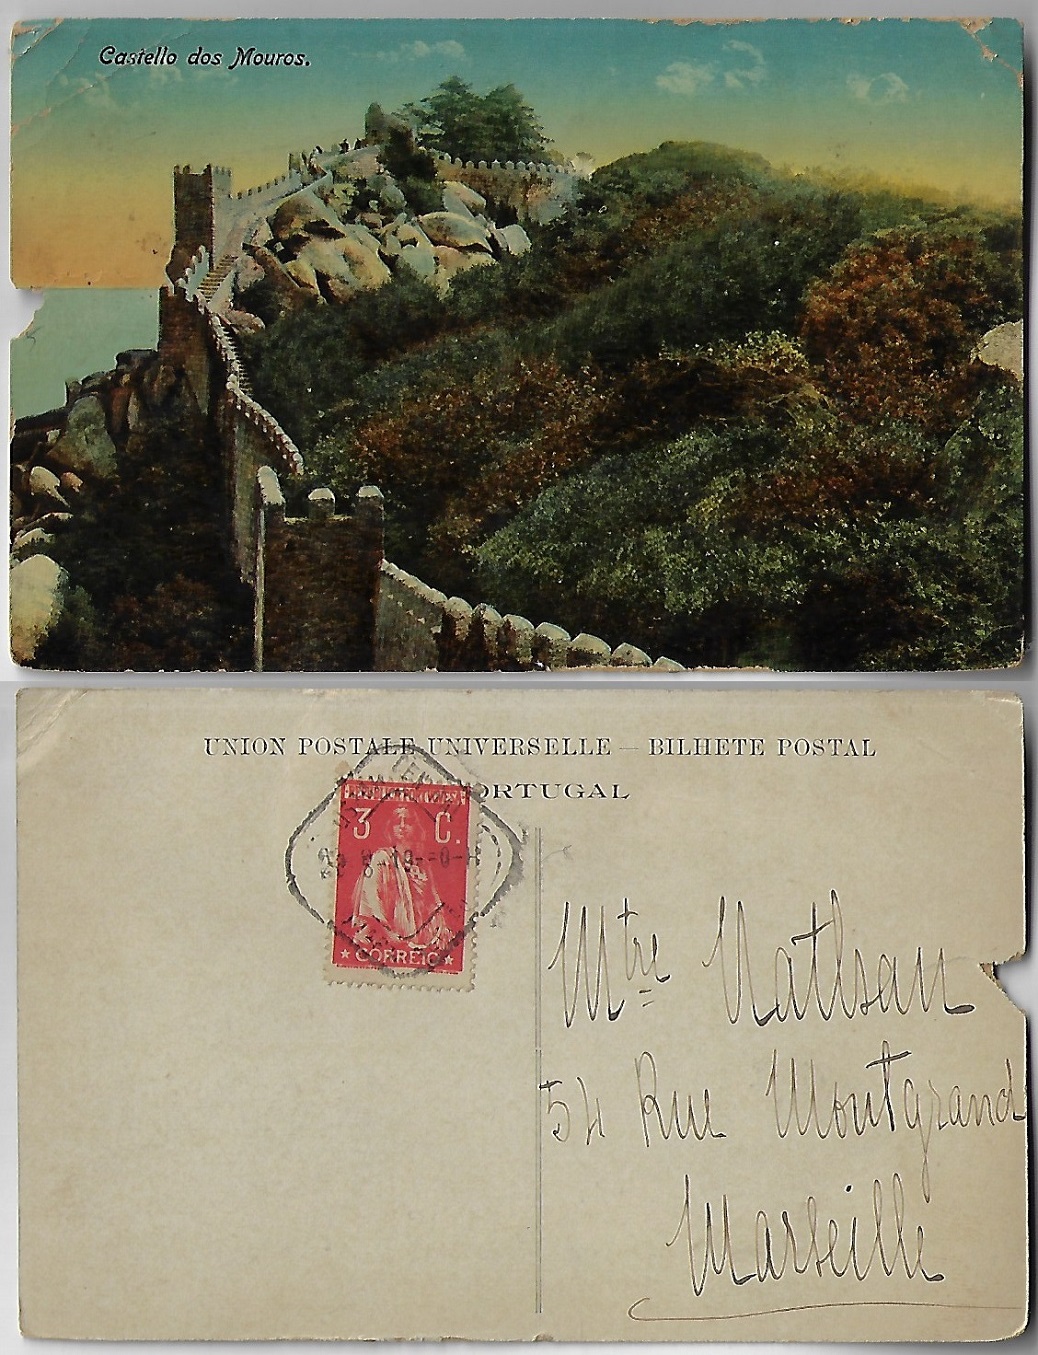 Castello dos Mouros.
UNION POSTALE UNIVERSELLE — BILHETE POSTAL
PORTUGAL
3 C.
CORREIO
Mtre Nathan
54 Rue Montgrand
Marseille